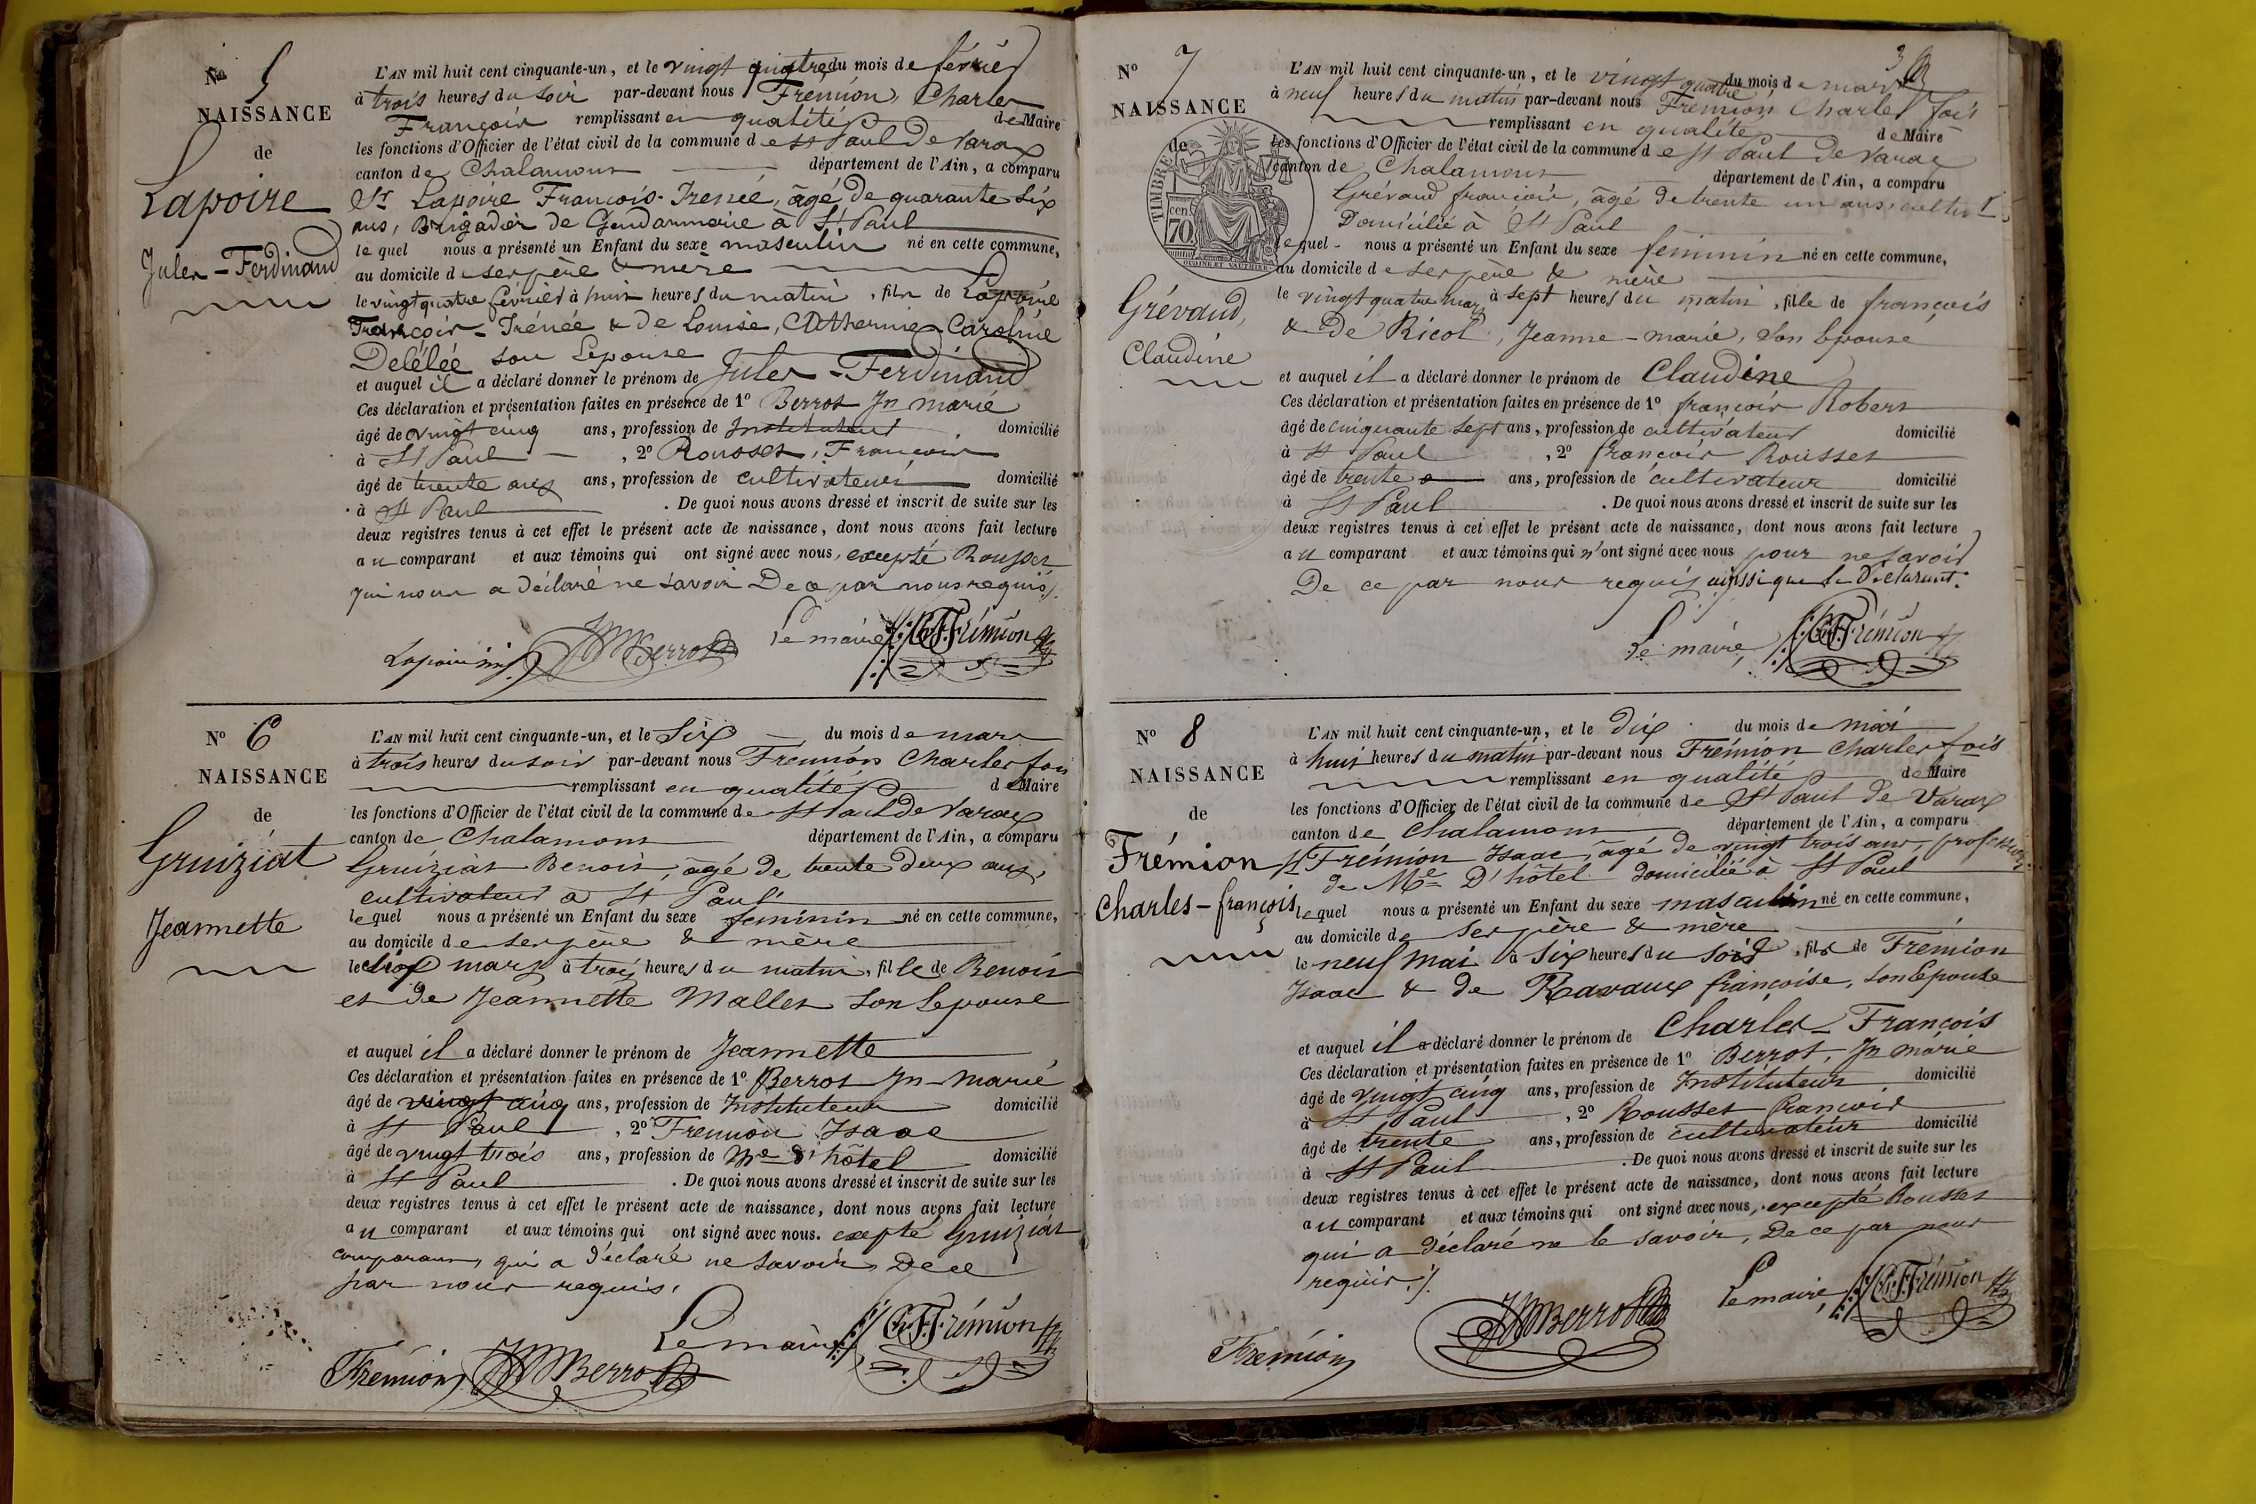 No 5
NAISSANCE
de
Lapoire
Jules - Ferdinand
L'AN mil huit cent cinquante-un, et le vingt quatre du mois de février
à trois heures du soir par-devant nous Fremion, Charles
François remplissant en qualité de Maire
les fonctions d'Officier de l'état civil de la commune de St Paul de Varax
canton de Chalamont département de l'Ain, a comparu
Sr Lapoire François-Irenée, âgé de quarante six
ans, Brigadier de Gendarmerie à St Paul
le quel nous a présenté un Enfant du sexe masculin né en cette commune,
au domicile de ses père & mère
le vingt quatre février à huit heures du matin, fils de Lapoire
François - Irénée & de Louise, Catherine Caroline
Delélée son Epouse
et auquel il a déclaré donner le prénom de Jules - Ferdinand
Ces déclaration et présentation faites en présence de 1º Berrot Jn marie
âgé de vingt cinq ans, profession de Instituteur domicilié
à St Paul, 2º Rousset, François
âgé de trente ans ans, profession de cultivateur domicilié
à St Paul. De quoi nous avons dressé et inscrit de suite sur les
deux registres tenus à cet effet le présent acte de naissance, dont nous avons fait lecture
au comparant et aux témoins qui ont signé avec nous, excepté Rousset
qui nous a déclaré ne savoir De ce par nous requis ./.
Lapoire Berrot Le maire Ch. F. Frémion
No 6
NAISSANCE
de
Gruiziat
Jeannette
L'AN mil huit cent cinquante-un, et le Six du mois de mars
à trois heures du soir par-devant nous Fremion Charles fois
remplissant en qualité de Maire
les fonctions d'Officier de l'état civil de la commune de St Paul de Varax
canton de Chalamont département de l'Ain, a comparu
Gruiziat Benoit, âgé de trente deux ans,
cultivateur à St Paul
le quel nous a présenté un Enfant du sexe feminin né en cette commune,
au domicile de ses père & mère
le six mars à trois heures du matin, fille de Benoit
et de Jeannette Mallet son Epouse
et auquel il a déclaré donner le prénom de Jeannette
Ces déclaration et présentation faites en présence de 1º Berrot Jn-Marie
âgé de vingt cinq ans, profession de Instituteur domicilié
à St Paul, 2º Fremion Isaac
âgé de vingt trois ans, profession de Me d'hôtel domicilié
à St Paul. De quoi nous avons dressé et inscrit de suite sur les
deux registres tenus à cet effet le présent acte de naissance, dont nous avons fait lecture
au comparant et aux témoins qui ont signé avec nous. excepté Gruiziat
comparant, qui a déclaré ne savoir De ce
par nous requis.
Le maire Ch. F. Frémion
Frémion Berrot
3
No 7
NAISSANCE
de
TIMBRE
70
cen
Grévaud,
Claudine
L'AN mil huit cent cinquante-un, et le vingt quatre du mois de mars
à neuf heures du matin par-devant nous Fremion Charles fois
remplissant en qualité de Maire
les fonctions d'Officier de l'état civil de la commune de St Paul de Varax
canton de Chalamont département de l'Ain, a comparu
Grévaud françois, âgé de trente un ans, cultivr
Domicilié à St Paul
le quel nous a présenté un Enfant du sexe feminin né en cette commune,
au domicile de ses père & mère
le vingt quatre mars à sept heures du matin, fille de françois
& de Ricol, Jeanne - marie, son Epouse
et auquel il a déclaré donner le prénom de Claudine
Ces déclaration et présentation faites en présence de 1º françois Robert
âgé de cinquante sept ans, profession de cultivateur domicilié
à St Paul, 2º françois Rousset
âgé de trente ans, profession de cultivateur domicilié
à St Paul. De quoi nous avons dressé et inscrit de suite sur les
deux registres tenus à cet effet le présent acte de naissance, dont nous avons fait lecture
au comparant et aux témoins qui n'ont signé avec nous pour ne savoir
De ce par nous requis ainssi que le Déclarant.
Le maire, Ch. F. Frémion
No 8
NAISSANCE
de
Frémion
Charles - françois
L'AN mil huit cent cinquante-un, et le dix du mois de mai
à huit heures du matin par-devant nous Frémion Charles fois
remplissant en qualité de Maire
les fonctions d'Officier de l'état civil de la commune de St Paul de Varax
canton de Chalamont département de l'Ain, a comparu
Sr Frémion Isaac, âgé de vingt trois ans, profession
de Me D'hôtel domicilié à St Paul
le quel nous a présenté un Enfant du sexe masculin né en cette commune,
au domicile de ses père & mère
le neuf Mai à Six heures du soir, fils de Fremion
Isaac & de Ravaux françoise, son Epouse
et auquel il a déclaré donner le prénom de Charles - François
Ces déclaration et présentation faites en présence de 1º Berrot, Jn Marie
âgé de vingt cinq ans, profession de Instituteur domicilié
à St Paul, 2º Rousset François
âgé de trente ans, profession de cultivateur domicilié
à St Paul. De quoi nous avons dressé et inscrit de suite sur les
deux registres tenus à cet effet le présent acte de naissance, dont nous avons fait lecture
au comparant et aux témoins qui ont signé avec nous, excepté Rousset
qui a déclaré ne le savoir, De ce par nous
requis ./.
Frémion Berrot Le maire, Ch. F. Frémion